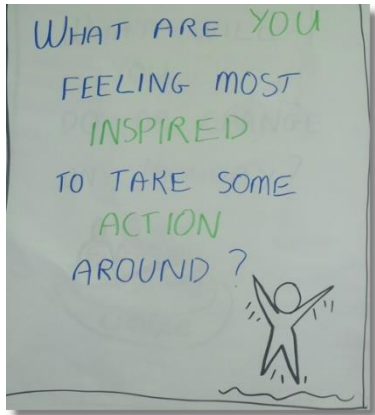 WHAT ARE YOU
FEELING MOST
INSPIRED
TO TAKE SOME
ACTION
AROUND?